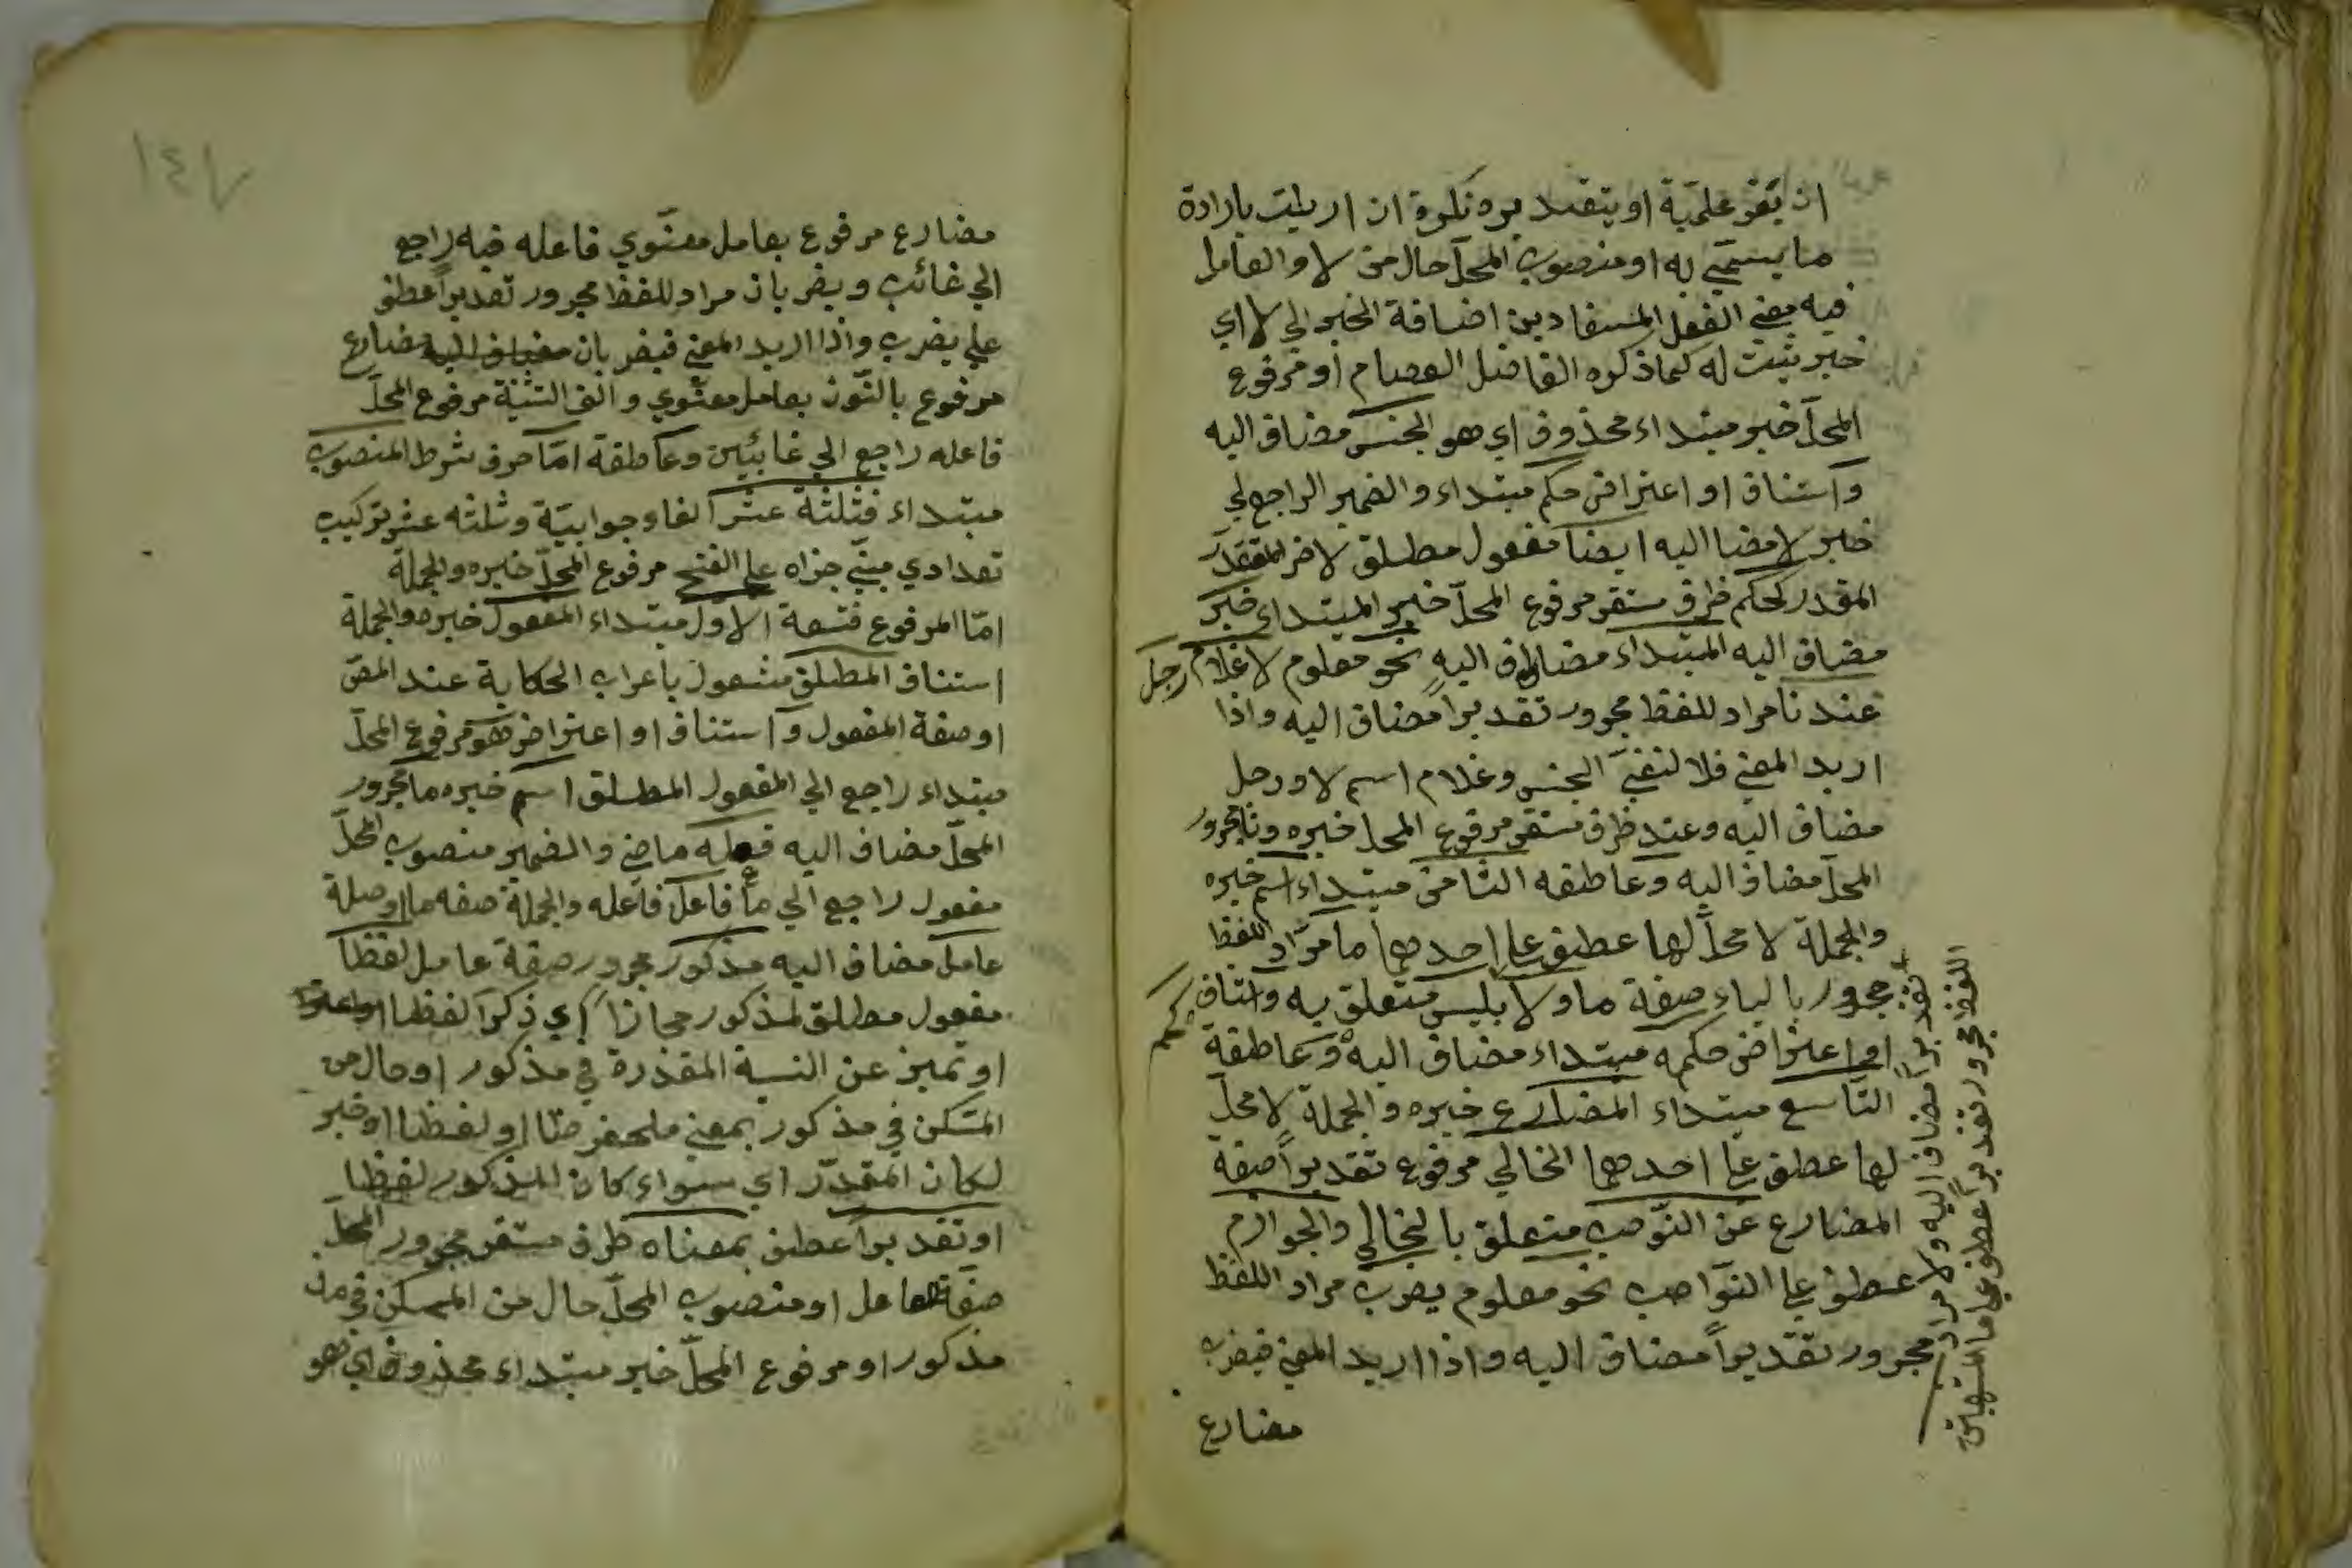 ان بقي علميّة او بتقدير نكرة ان اريد بارادة
ما يسمّى به او منصوب المحلّ حال من لا والعامل
فيه معنى الفعل المستفاد من اضافة الخبر الى لا اي
خبر يثبت له كما ذكره الفاضل العصام او مرفوع
المحلّ خبر مبتداء محذوف اي هو الجنس مضاف اليه
واستناف او اعتراض حكم مبتداء والضمير الراجع لى
خبر لا مضا اليه ايضا مفعول مطلق لاض
المقدر كحكم ظرف مستقر مرفوع المحلّ خبر المبتداء خبر
مضاف اليه المبتداء مضاف اليه نحو معلوم لا غلام رجل
عندنا مراد للفظ مجرور تقديراً مضاف اليه واذا
اريد المعنى فلا لنفي الجنس وغلام اسم لا ورجل
مضاف اليه وعند ظرف مستقر مرفوع المحل خبره ونا مجرور
المحلّ مضاف اليه وعاطفه الثامن مبتداء اسم خبره
والجملة لا محلّ لها عطف على احدهما ما مراد اللفظ
مجرور بالباء صفة ما ولا بليس متعلق به واستناف
او اعتراض حكمه مبتداء مضاف اليه وعاطفة
حكم
التاسع مبتداء المضارع خبره والجملة لا محلّ
لها عطف على احدهما الخالي مرفوع تقديراً صفة
المضارع عن النّوصب متعلق بالخالي والجوازم
عطف على النّواصب نحو معلوم يضرب مراد اللفظ
مجرور تقديراً مضاف اليه واذا اريد المعنى فيضرب
مضارع
تقديراً مضاف اليه ولا مراد
اللفظ مجرور تقديراً عطف على ما المشبهتين
١٤٧
مضارع مرفوع بعامل معنوي فاعله فيه راجع
الى غائب ويضربان مراد للفظ مجرور تقديراً عطف
على يضرب واذا اريد المعنى فيضربان مضارع
مرفوع بالنّون بعامل معنوي والف التثنية مرفوع المحلّ
فاعله راجع الى غائبين وعاطفة امّا حرف شرط المنصوب
مبتداء فثلثة عشر الفا وجوابيّة وثلثه عشر تركيب
تعدادي مبنّي جزاه على الفتح مرفوع المحلّ خبره والجملة
امّا المرفوع فتسعة الاول مبتداء المفعول خبره والجملة
استناف المطلق مشغول باعراب الحكاية عند المصّ
او صفة المفعول واستناف او اعتراض هو مرفوع المحلّ
مبتداء راجع الى المفعول المطلق اسم خبره ما مجرور
المحلّ مضاف اليه فعله ماضي والضمير منصوب المحلّ
مفعول راجع الى ما فاعل فاعله والجملة صفه ما او صلة
عامل مضاف اليه مذكور مجرور صفة عامل لفظا
مفعول مطلق لمذكور مجازا اي ذكرا لفظا
او تميز عن النسبة المقدرة في مذكور او حال من
المستكن في مذكور بمعنى ملحفوضا او لفظا او خبر
لكان المقدّر اي سواء كان المذكور لفظا
او تقديراً عطف بمعناه ظرف مستقر مجرور المحلّ
صفة عامل او منصوب المحلّ حال من المستكن في
مذكور او مرفوع المحلّ خبر مبتداء محذوف اي هو